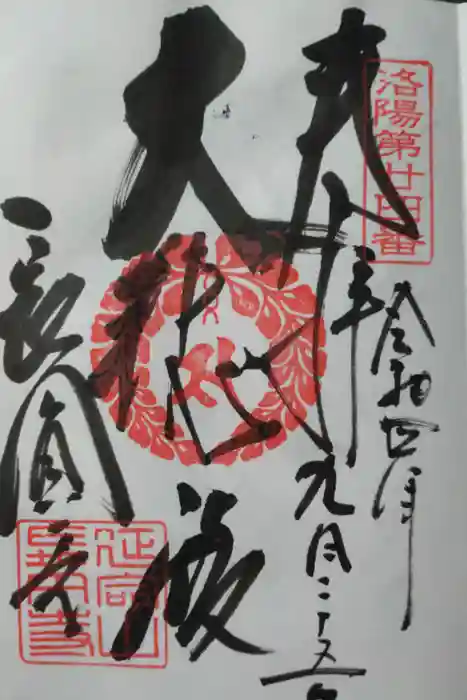 洛陽第廿四番
奉拝
令和四年
九月二十五日
大悲殿
長圓寺
延命山
長圓寺